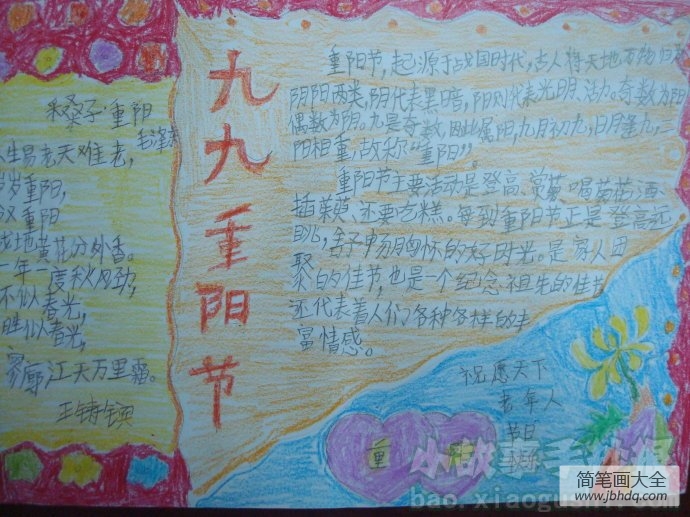 采桑子·重阳
毛泽东
人生易老天难老,
岁岁重阳,
今又重阳
战地黄花分外香。
一年一度秋风劲,
不似春光,
胜似春光,
寥廓江天万里霜。
九九重阳节
重阳节,起源于战国时代,古人将天地万物归为
阴阳两类,阴代表黑暗,阳则代表光明、活力。奇数为阳
偶数为阴。九是奇数,因此属阳,九月初九,日月逢九,二
阳相重,故称“重阳”。
重阳节主要活动是登高、赏菊、喝菊花酒、
插茱萸、还要吃糕。每到重阳节正是登高远
眺,舒畅胸怀的好时光。是家人团
聚的佳节,也是一个纪念祖先的佳节
还代表着人们各种各样的丰
富情感。
祝愿天下
老年人
节日
快乐
重
小故事手抄报
简笔画大全
www.jbhdq.com